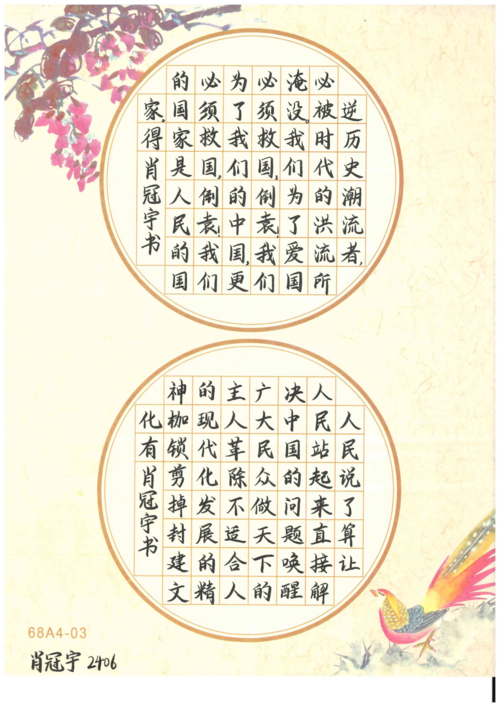 逆历史潮流者,
必被时代的洪流所
淹没。我们为了爱国
必须救国,倒袁,我们
为了我们的中国,更
必须救国,倒袁,我们
的国家是人民的国
家,得肖冠宇书
人民说了算让
人民站起来直接解
决中国的问题唤醒
广大民众做天下的
主人革除不适合人
的现代化发展的精
神枷锁剪掉封建文
化有肖冠宇书
68A4-03
肖冠宇 2406